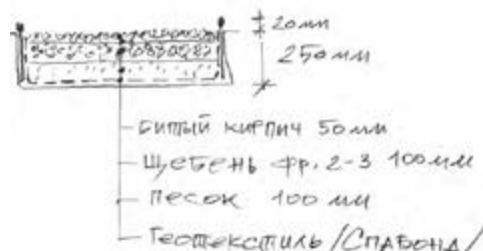 20мм
250мм
БИТЫЙ КИРПИЧ 50мм
ЩЕБЕНЬ фр. 2-3 100мм
ПЕСОК 100 мм
ГЕОТЕКСТИЛЬ /СПАБОНД/